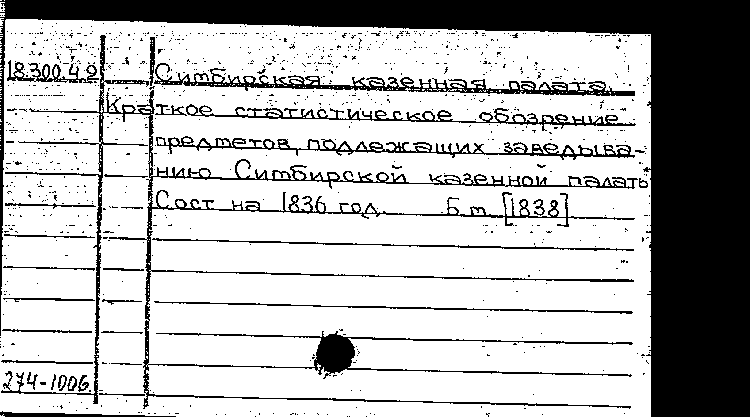 18.300.4.9 Симбирская казенная палата.
Краткое статистическое обозрение
предметов, подлежащих заведыва-
нию Симбирской казенной палаты
Сост на 1836 год. Б.м. [1838]
274-1006.